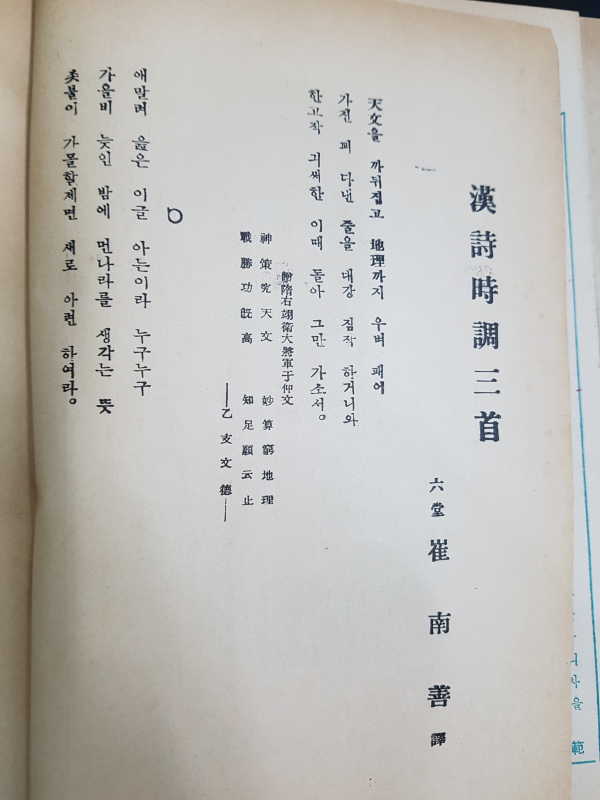 漢詩時調三首
六堂 崔南善 譯
天文을 까뒤집고 地理까지 우벼 패어
가진 꾀 다낸 줄을 대강 짐작 하거니와
한고작 긔써한 이때 돌아 그만 가소서。
贈隋右翊衛大將軍于仲文
神策究天文 妙算窮地理
戰勝功旣高 知足願云止
——乙支文德——
○
애말려 읊은 이글 아는이라 누구누구
가을비 늦인 밤에 먼나라를 생각는 뜻
촛불이 가물할제면 새로 아련 하여라。
마
을
範